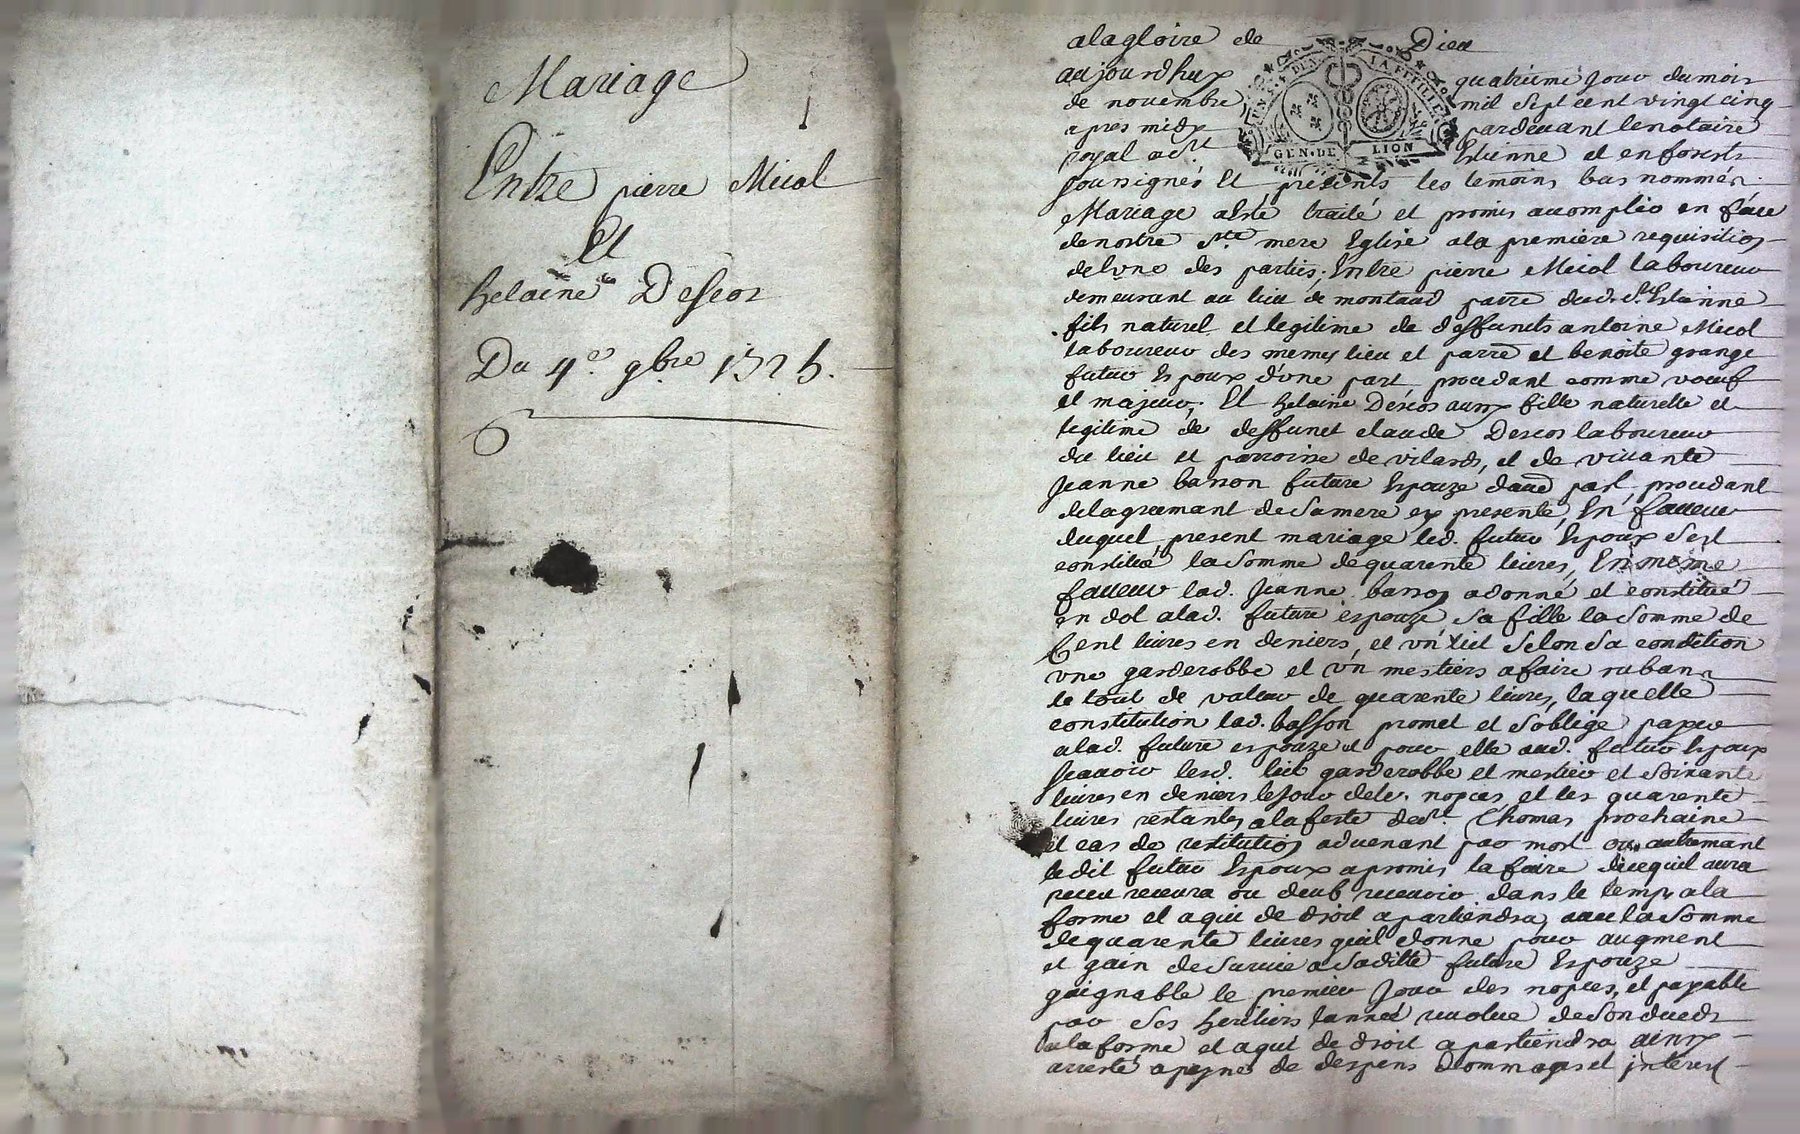 Mariage
Entre pierre Micol
Et
helaine Descos
Du 4e 9bre 1725.
a la gloire de Dieu
aujourdhuy quatrieme jour du mois
de novembre mil sept cent vingt cinq
apres midy pardevant le notaire
royal a St Estienne et en forests
sounsignés et presents les temoins bas nommés.
Mariage a esté traité et promis accomplir en face
de nostre Ste mere Eglise a la premiere requisition
de lune des parties; Entre pierre Micol laboureur
demeurant au lieu de montaud parre dud. St Estienne
fils naturel et legitime de deffunts antoine Micol
laboureur des memes lieu et parre et benoite grange
futur Espoux d'une part procedant comme voeuf
et majeur; Et helaine Descos aussy fille naturelle et
legitime de deffunct claude Descos laboureur
du lieu et parroisse de vilards, et de vivante
Jeanne basson future Espouze dautre part, procedant
de lagreemant de sa mere cy presente, En faveur
duquel present mariage led. futur Espoux sest
constitué la somme de quarente livres, En meme
faveur lad. Jeanne basson a donné et constitué
en dot a lad. future espouze sa fille la somme de
Cent livres en deniers, et un lict selon sa condition
une garderobbe et un mestiers a faire ruban
le tout de valeur de quarente livres, laquelle
constitution lad. basson promet et soblige payer
a lad. future espouze et pour elle aud. futur Espoux
scavoir lesd. lict garderobbe et mestier et soixante
livres en deniers le jour de leurs nopces, et les quarente
livres restantes a la feste de St Thomas prochaine
et cas de restitution advenant par mort ou autremant
ledit futur Espoux a promis la faire de ce quil aura
receu recevra ou deub recevoir dans le temps a la
forme et a qui de droit apartiendra, avec la somme
de quarente livres quil donne pour augment
et gain de survie a saditte future Espouze
gaignable le premier jour des nopces, et payable
par ses heritiers lannée revolue de son deceds
a la forme et a qui de droit apartiendra ainsy
arresté a peyne de despens dommages et interest
GEN · DE LION